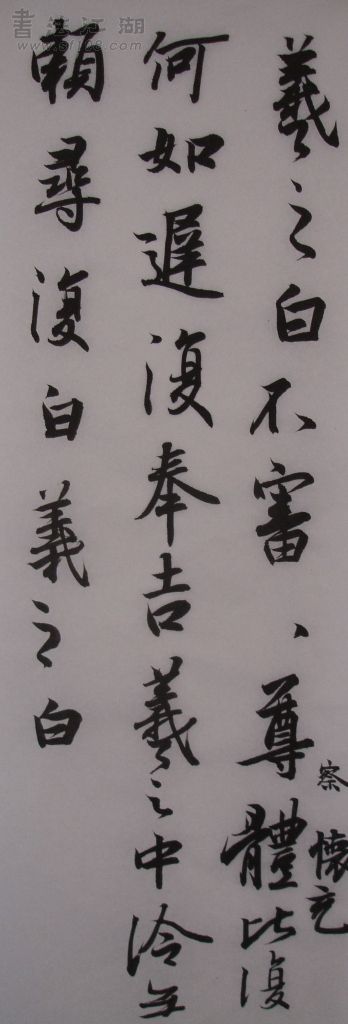 羲之白不審、尊體比復
察
懷充
何如遲復奉告羲之中冷無
賴尋復白羲之白
書法江湖
www.sf108.com